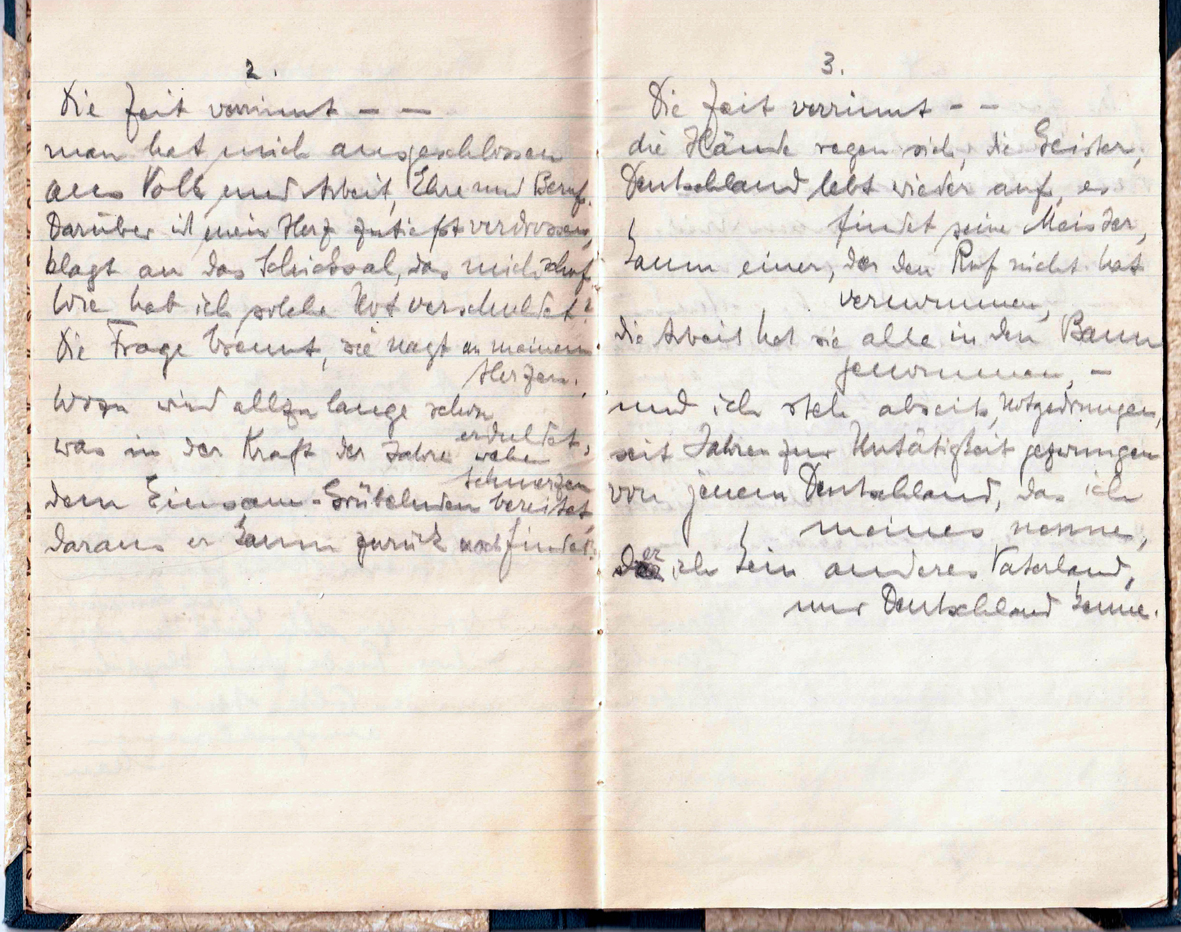 2.
Die Zeit verrinnt – –
man hat mich ausgeschlossen
aus Volk und Arbeit, Ehre und Beruf.
Darüber ist mein Herz zutiefst verdrossen,
klagt an das Schicksal, das mich schuf.
Wie hat ich solche Not verschuldet?
Die Frage brennt, sie nagt an meinem
Herzen.
Wozu wird allzu lange schon
erduldet,
was in der Kraft der Jahre wehen
Schmerzen
dem Einsam-Grübelnden bereitet,
daraus er kaum zurück noch findet.
3.
Die Zeit verrinnt – –
die Hände regen sich, die Geister,
Deutschland lebt wieder auf, es
findet seine Meister,
kaum einer, der den Ruf nicht hat
vernommen,
die Arbeit hat sie alle in den Bann
genommen, –
und ich steh abseits, notgedrungen,
seit Jahren zur Untätigkeit gezwungen
von jenem Deutschland, das ich
meines nenne,
der ich kein anderes Vaterland,
nur Deutschland kenne.